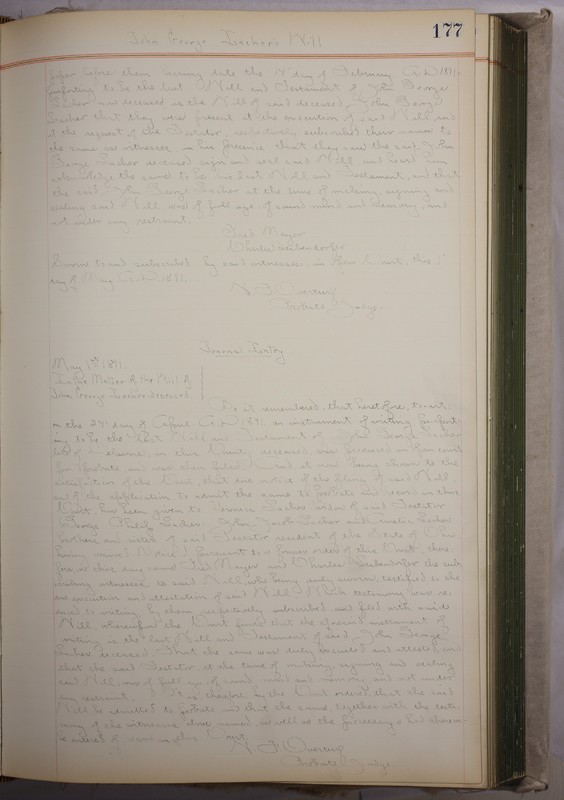 177
John George Zacher's Will
before them bearing date the day of February A.D. 1891
purporting to be the last Will and Testament of John George
Zacher now deceased is the Will of said deceased, John George
Zacher that they were present at the execution of said Will and
at the request of the Testator, respectively subscribed their names to
the same as witnesses in his presence that they saw the said John
George Zacher deceased sign and seal said Will, and heard him
acknowledge the same to be his last Will and Testament, and that
the said John George Zacher at the time of making, signing and
sealing said Will was of full age, of sound mind and memory, and
not under any restraint.
Fred Mayer
Charles
Sworn to and subscribed by said witnesses, in Open Court, this
day of May A.D. 1891.
Probate Judge.
Journal Entry
May 1st 1891.
In the Matter of the Will of
John George Zacher deceased.
Be it remembered, that heretofore, to-wit:
on the 24 day of April A.D. 1891, an instrument of writing purport-
ing to be the last Will and Testament of John George Zacher
late of in this County, deceased, was produced in Open court
for probate and was then filed. And it now being shown to the
satisfaction of the Court, that due notice of the filing of said Will,
and of the application to admit the same to probate and record in this
Court, has been given to Zacher widow of said Testator
George Philip Zacher, John Jacob Zacher and Zacher
brothers and sister of said Testator resident of the State of Ohio
Pursuant to a former order of this Court, there-
fore, on this day came Fred Mayer and Charles the sub-
scribing witnesses to said Will, who being duly sworn, testified to the
due execution and attestation of said Will. Which testimony was re-
duced to writing by them respectively subscribed and filed with said
Will whereupon the Court found that the aforesaid instrument of
writing is the last Will and Testament of said John George
Zacher deceased. That the same was duly executed and attested, and
that the said Testator, at the time of making, signing and sealing
said Will, was of full age, of sound mind and memory, and not under
any restraint. It is therefore by the Court ordered that the said
Will be admitted to probate and that the same, together with the testi-
mony of the witnesses above named as well as the proceedings had thereon
be entered of record in this Court.
Probate Judge